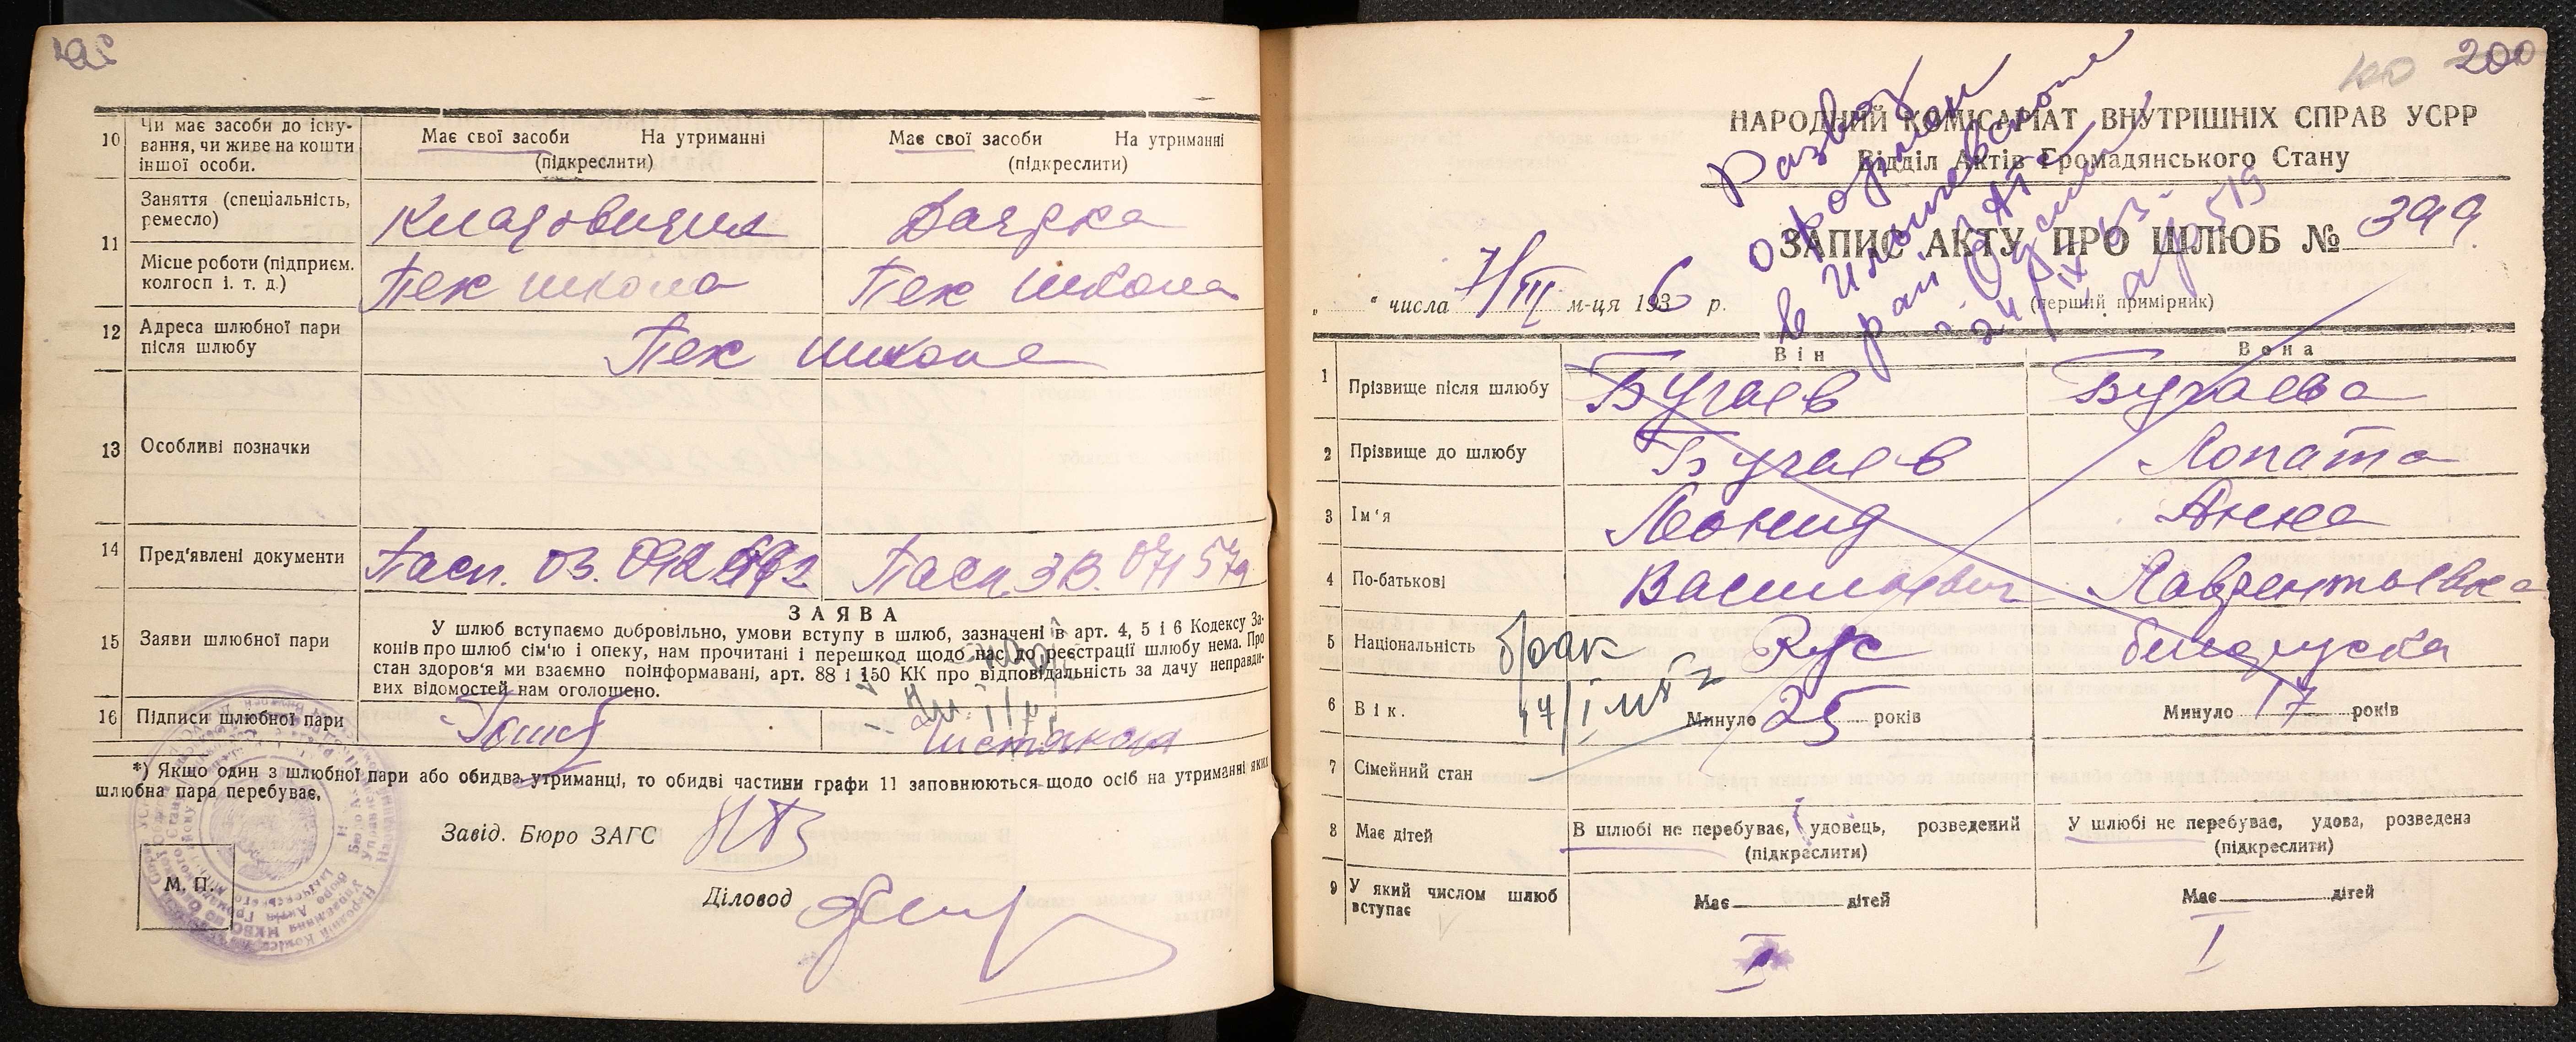 10 Чи має засоби до існу-
вання, чи живе на кошти
іншої особи.
Має свої засоби На утриманні
(підкреслити)
Має свої засоби На утриманні
(підкреслити)
11 Заняття (спеціальність,
ремесло)
Кладовщик Доярка
Місце роботи (підприєм.
колгосп і. т. д.)
Пех школа Пех школа
12 Адреса шлюбної пари
після шлюбу
Пех школа
13 Особливі позначки
14 Пред'явлені документи
Пасп. ОЗ. Пасп. ЗВ. 071579
15 Заяви шлюбної пари
ЗАЯВА
У шлюб вступаємо добровільно, умови вступу в шлюб, зазначені в арт. 4, 5 і 6 Кодексу За-
конів про шлюб сім'ю і опеку, нам прочитані і перешкод щодо нас до реєстрації шлюбу нема. Про
стан здоров'я ми взаємно поінформавані, арт. 88 і 150 КК про відповідальність за дачу неправди-
вих відомостей нам оголошено.
16 Підписи шлюбної пари
*) Якщо один з шлюбної пари або обидва утриманці, то обидві частини графи 11 заповнюються щодо осіб на утриманні яких
шлюбна пара перебуває.
Завід. Бюро ЗАГС
Діловод
М. П.
200
НАРОДНИЙ КОМІСАРІАТ ВНУТРІШНІХ СПРАВ УСРР
Відділ Актів Громадянського Стану
ЗАПИС АКТУ ПРО ШЛЮБ № 399
" числа 7/III м-ця 1936 р.
(перший примірник)
Развод
оформлен
Він Вона
1 Прізвище після шлюбу Бугаев Бугаева
2 Прізвище до шлюбу Бугаев Лопата
3 Ім'я Леонид Анна
4 По-батькові Васильевич Лаврентьевна
5 Національність брак Рус білоруска
6 Вік. Минуло 25 років Минуло 17 років
7 Сімейний стан
8 Має дітей
В шлюбі не перебуває, удовець, розведений
(підкреслити)
У шлюбі не перебуває, удова, розведена
(підкреслити)
9 У який числом шлюб
вступає
Має дітей Має дітей
I I